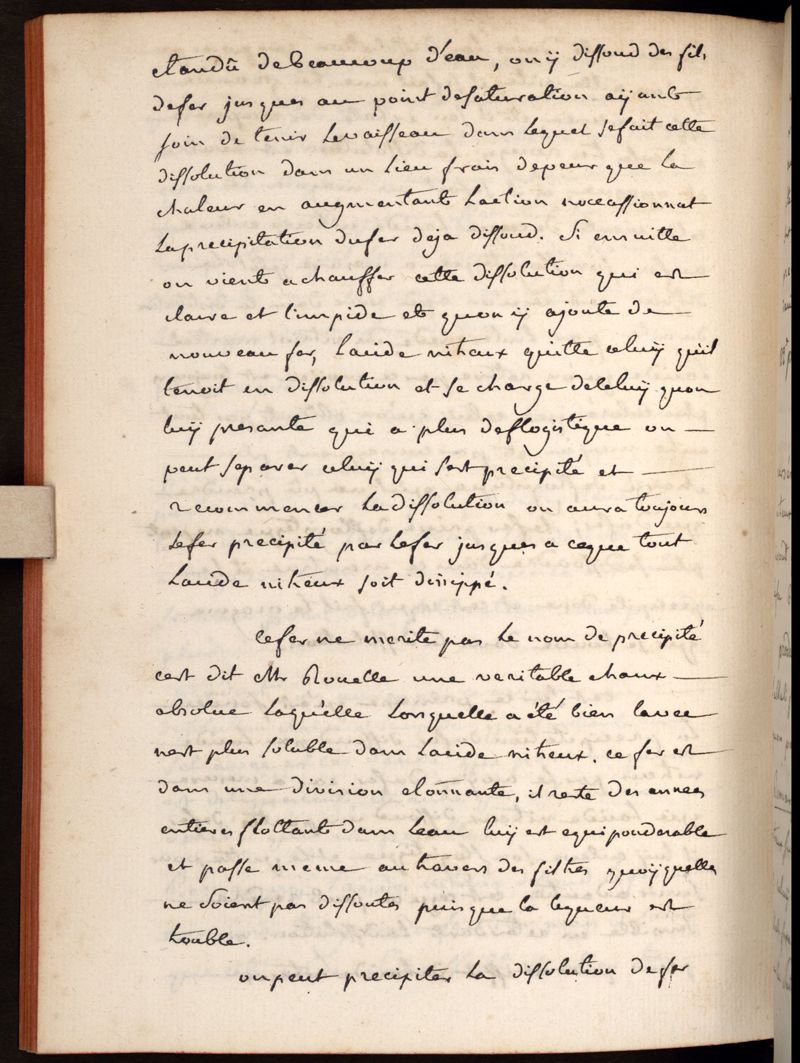 etandû de beaucoup d'eau, on ÿ dissoud des fils
de fer jusques au point de saturation aÿant
soin de tenir Levaisseau dans lequel se fait cette
dissolution dans un Lieu frais depeur que La
chaleur en augmentant Laction noccassionnat
La precipitation dufer deja dissoud. Si ensuitte
on vient a chauffer cette dissolution qui est
claire et Limpide et quon ÿ ajoute de
nouveau fer, Lacide nitreux quitte celuÿ quil
tenoit en dissolution et se charge deceluÿ quon
luÿ presante qui a plus deflogistique on
peut separer celuÿ qui sest precipité et
recommencer La dissolution on aura toujours
Lefer precipité par Lefer jusques a ceque tout
Lacide nitreux soit dissippé.
Cefer ne merite pas Le nom de precipité
cest dit Mr Rouelle une veritable chaux
absolue Laquelle Lorsquelle a été bien lavee
nest plus soluble dans Lacide nitreux. ce fer est
dans une division etonnante, il reste des années
entieres flottant dans Leau luÿ est equiponderable
et passe meme autravers des filtres quoÿquelles
ne soient pas dissoutes puisque la liqueur est
trouble.
on peut precipiter La dissolution de fer